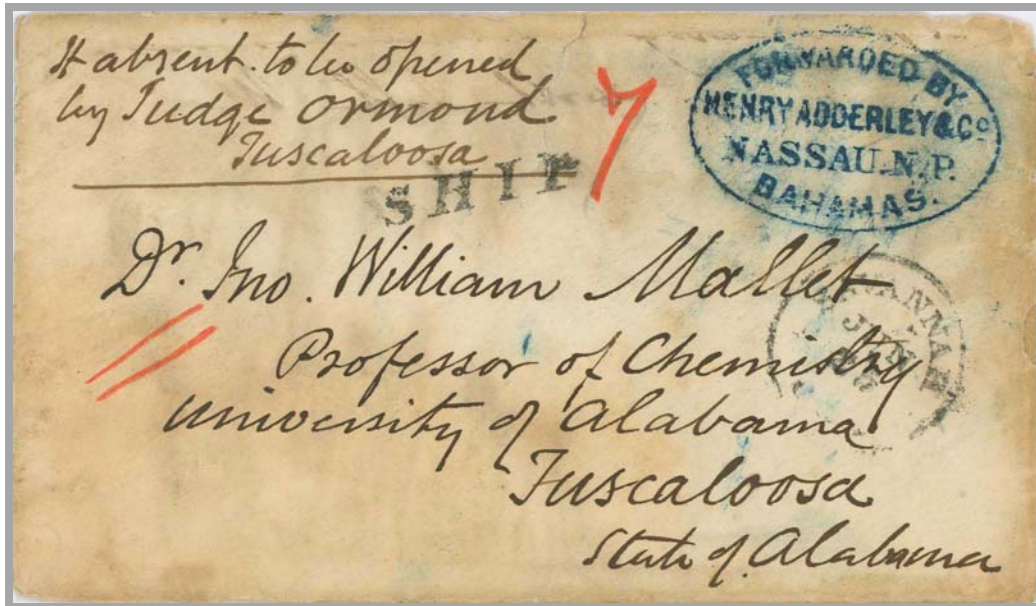 If absent. to be opened
by Judge Ormond
Tuscaloosa
7
SHIP
FORWARDED BY
HENRY ADDERLEY & Co
NASSAU. N. P.
BAHAMAS.
Dr. Jno. William Mallet
Professor of Chemistry
University of Alabama
Tuscaloosa
State of Alabama
ANNAH